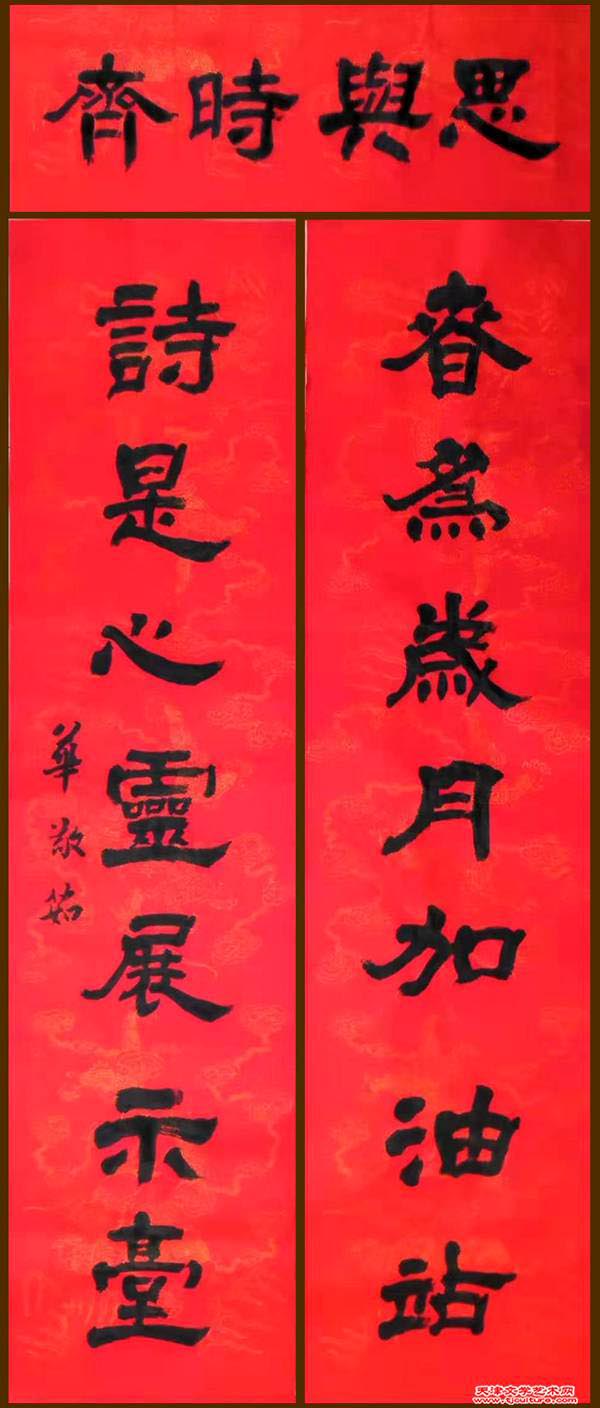 思與時齊
春為歲月加油站
詩是心靈展示臺
華敬茹
天津文学艺术网
www.tjculture.com